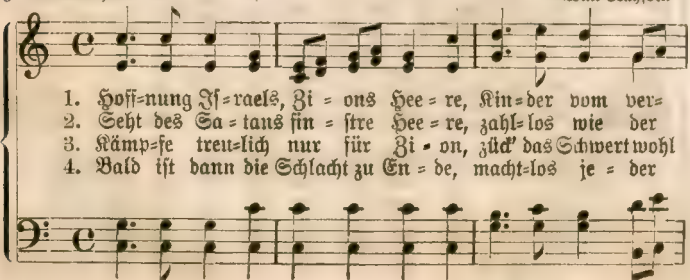 1. Hoff=nung Is=raels, Zi = ons Hee = re, Kin=der vom ver=
2. Seht des Sa = tans fin = stre Hee = re, zahl=los wie der
3. Kämp=fe treu=lich nur für Zi = on, zück' das Schwert wohl
4. Bald ist dann die Schlacht zu En = de, macht=los je = der